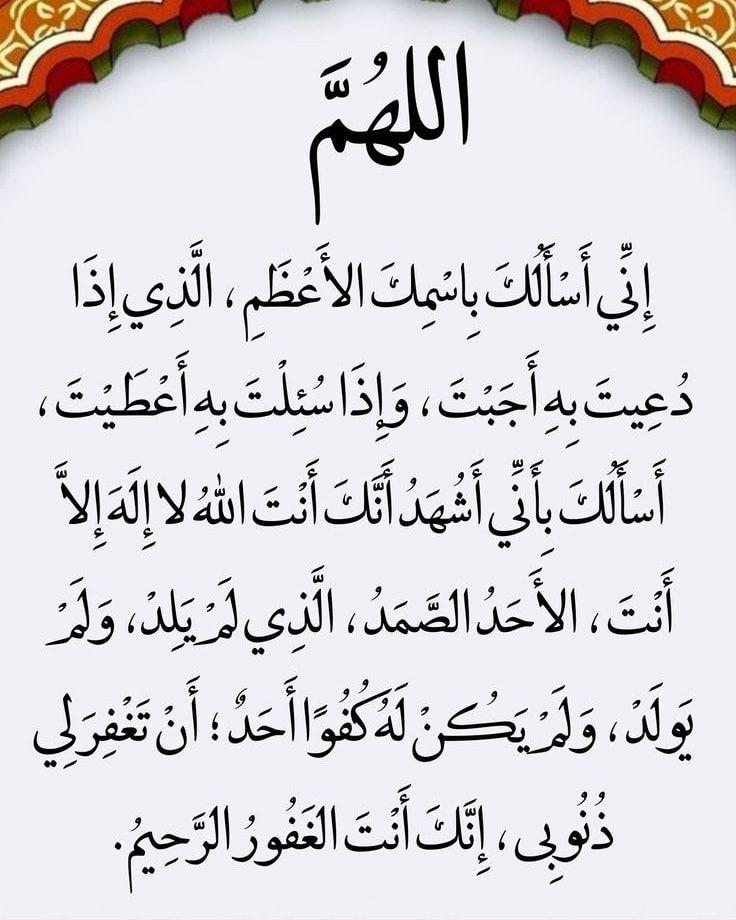 اللهُمَّ
إِنِّي أَسْأَلُكَ بِاسْمِكَ الأَعْظَمِ، الَّذِي إِذَا
دُعِيتَ بِهِ أَجَبْتَ، وَإِذَا سُئِلْتَ بِهِ أَعْطَيْتَ،
أَسْأَلُكَ بِأَنِّي أَشْهَدُ أَنَّكَ أَنْتَ اللهُ لا إِلَهَ إِلاَّ
أَنْتَ، الأَحَدُ الصَّمَدُ، الَّذِي لَمْ يَلِدْ، وَلَمْ
يَولَدْ، وَلَمْ يَكُنْ لَهُ كُفُوًا أَحَدٌ؛ أَنْ تَغْفِرَ لِي
ذُنُوبِى، إِنَّكَ أَنْتَ الغَفُورُ الرَّحِيمُ.